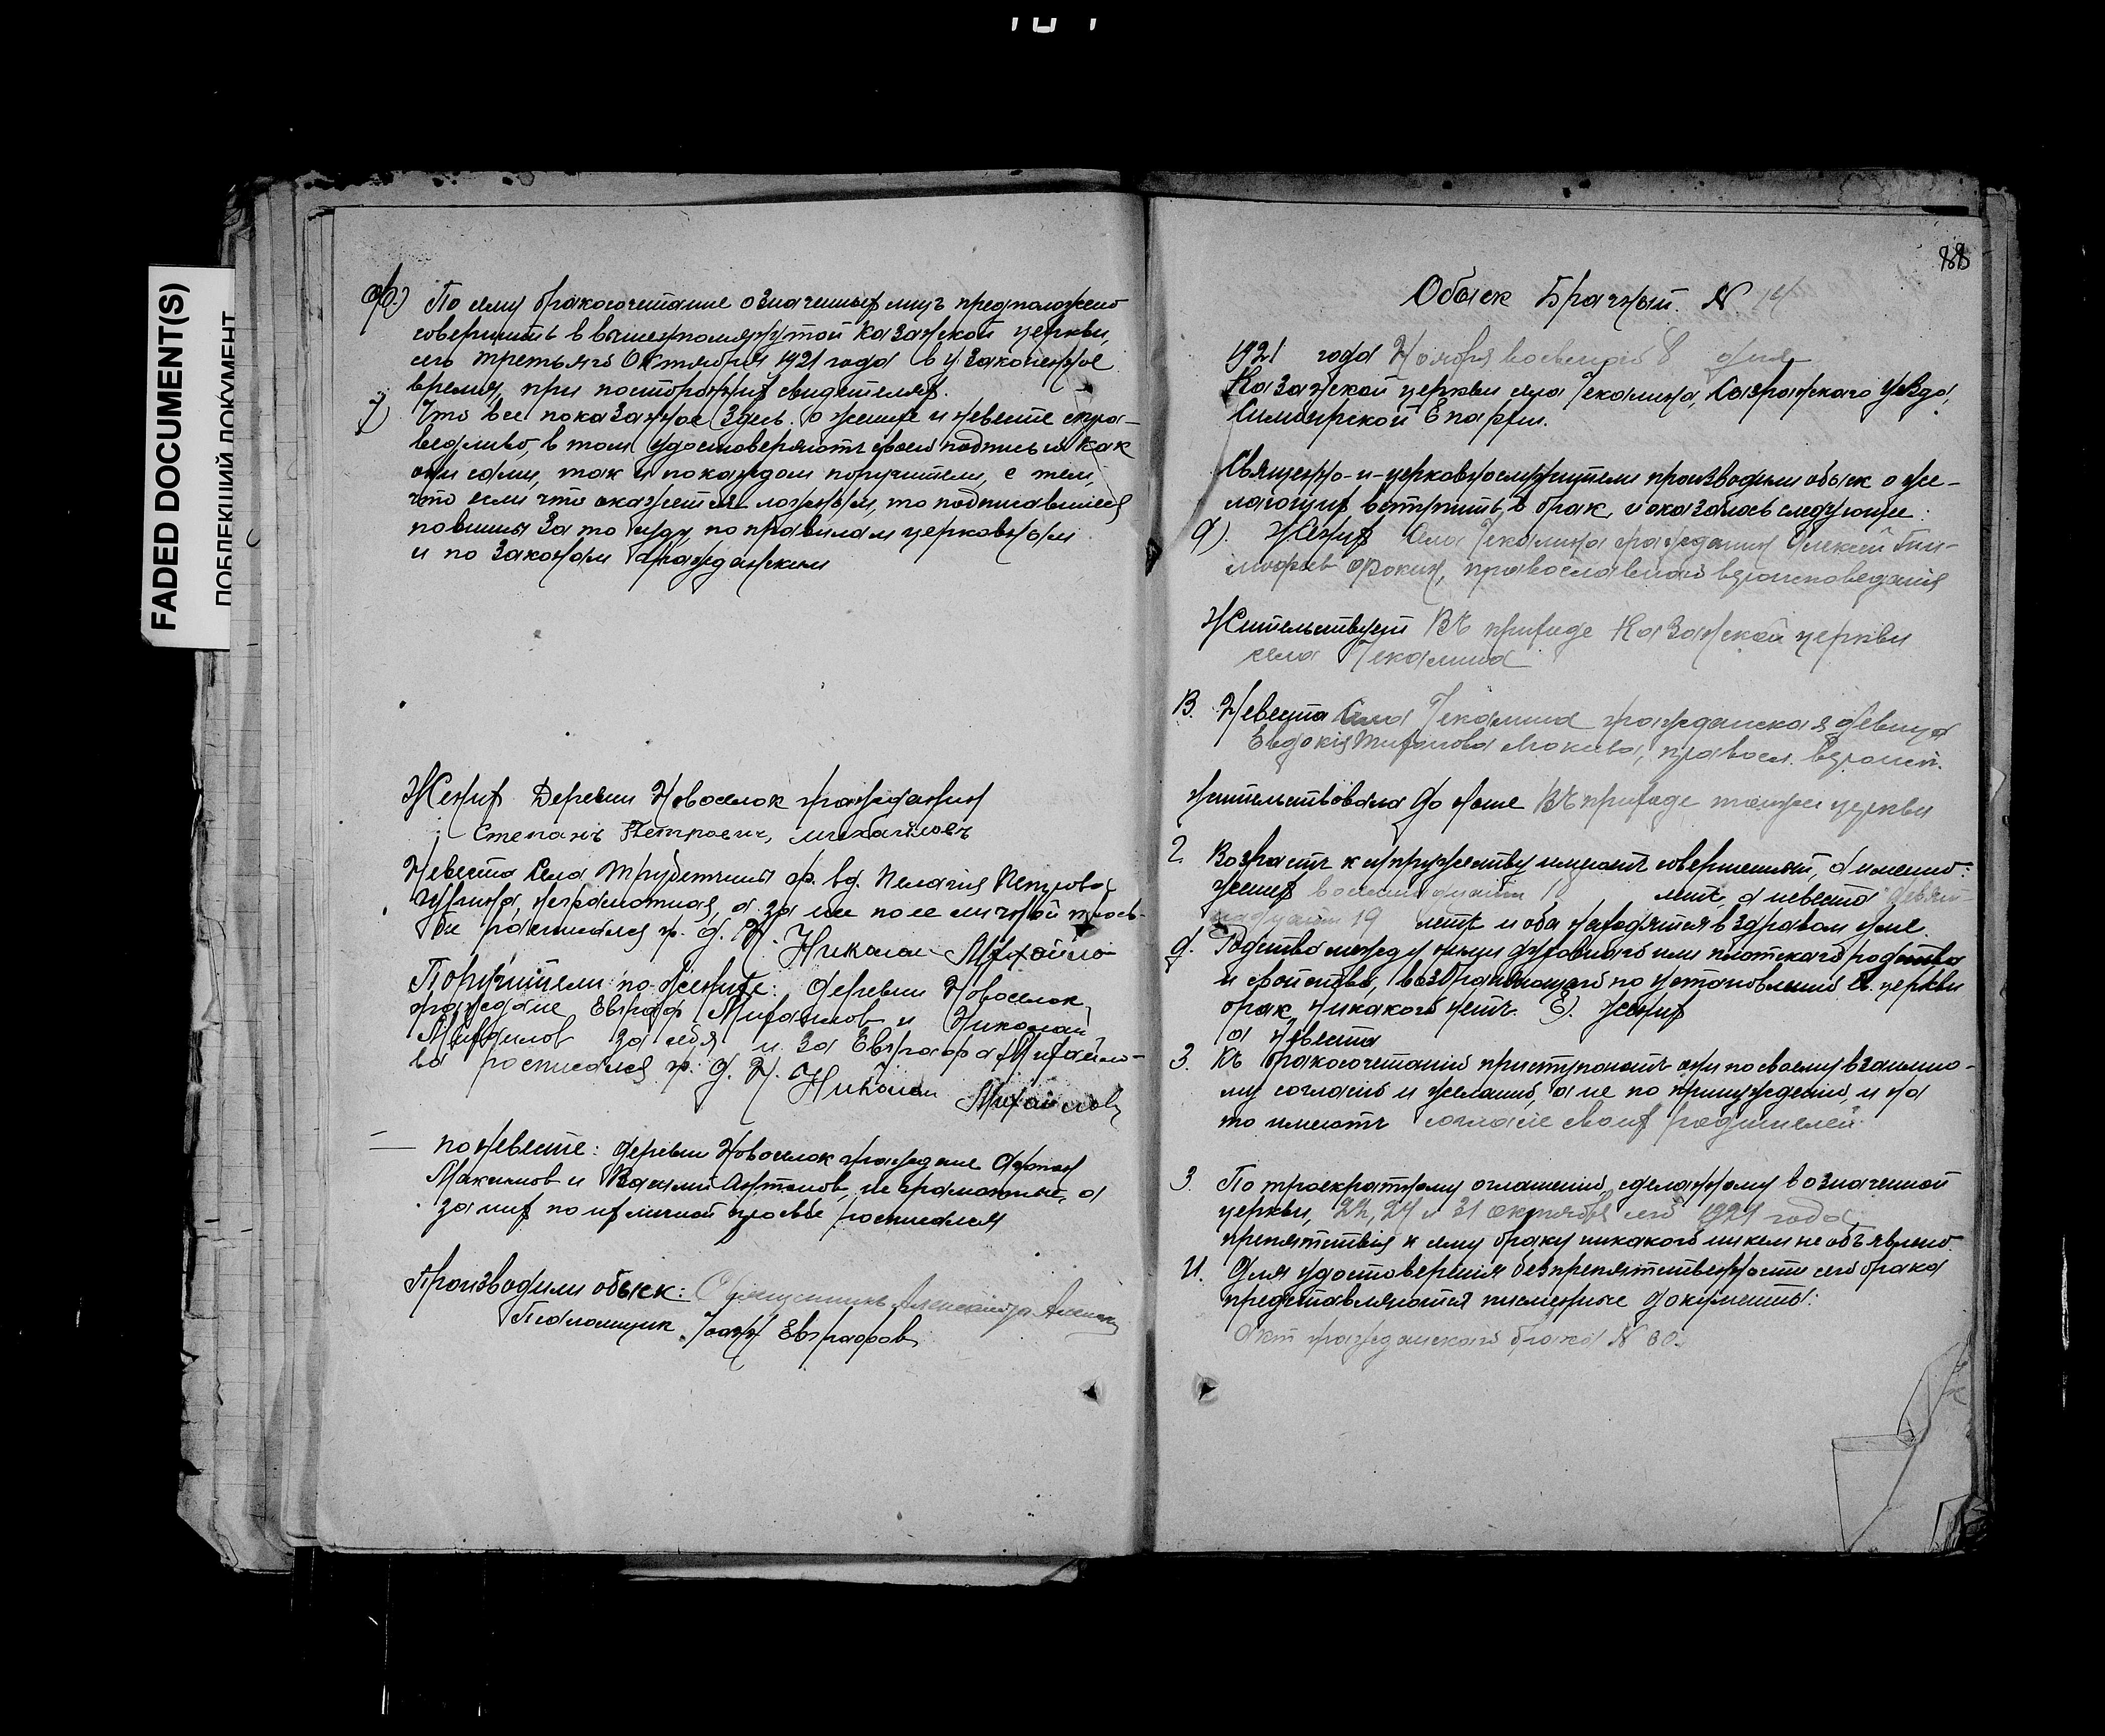 FADED DOCUMENT(S)
ПОБЛЕКШИЙ ДОКУМЕНТ
По сему бракосочетание означенных лиц предположено
совершить в вышеупомянутой Казанской церкви,
сего третьяго Октября 1921 года в узаконенное
время, при посторонних свидетелях.
Что все показанное здесь о женихе и невесте спра-
ведливо, в том удостоверяют своей подписью как
они сами, так и по каждом поручители, с тем,
что если что окажется ложным, то подписавшиеся
повинны за то суду, по правилам церковным
и по законам гражданским
Жених Деревни Новоселок гражданин
Степанъ Петровичъ, михайловъ
Невеста села Трубетчины гр. вд. Пелагия Петрова
неграмотная, а за нее по ее личной прось-
бе расписался гр. д. Н. Николай Михайло
Поручители по женихе: деревни Новоселок
граждане Евграф Михаилов и Николай
Михаилов за себя и за Евграфа Михайло-
ва росписался гр. д. Н. Николай Михайловъ
по невесте: деревни Новоселок граждане
Максимов и Василий Антонов, неграмотные, а
за них по их личной просьбе росписался
Производили обыск: Священникъ Александръ
Псаломщик Иоанн Евграфов
88
Обыск Брачный. N. 14
1921 года Ноября восьмого 8 дня
Казанской церкви села Чекалина, Сызранскаго уезда,
Симбирской Епархии.
Священно-и-церковнослужители производили обыск о же-
лающих вступить в брак, и оказалось следующее:
а). Жених Села Чекалина гражданин Алексей Тим-
офеев Фокин, православнаго вероисповедания
Жительствует Въ приходе Казанской церкви
села Чекалина
В. Невеста Села Чекалина гражданская девица
Евдокия православ. вероисп.
жительствовала до ныне Въ приходе тойже церкви
2. Возраст к супружеству имеют совершенный, а именно:
жених восемнадцати лет, а невеста девят-
надцати 19 летъ и оба находятся в здравом уме.
д. Родства между ними духовнаго или плотскаго родства
и свойства, возбраняющаго по установлению св. церкви
брак никакого нетъ. Е). жених
а невеста
3. Къ бракосочетанию приступают они по своему взаимно-
му согласию и желанию, а не по принуждению, и на
то имеютъ согласие своих родителей
3. По троекратному оглашению, сделанному в означенной
церкви, 22, 24 и 31 октября сего 1921 года,
препятствия к сему браку никакого никем не объявлено.
И. Для удостоверения безпрепятственности сего брака
представляются писменные документы:
Акт гражданскаго брака N 80.